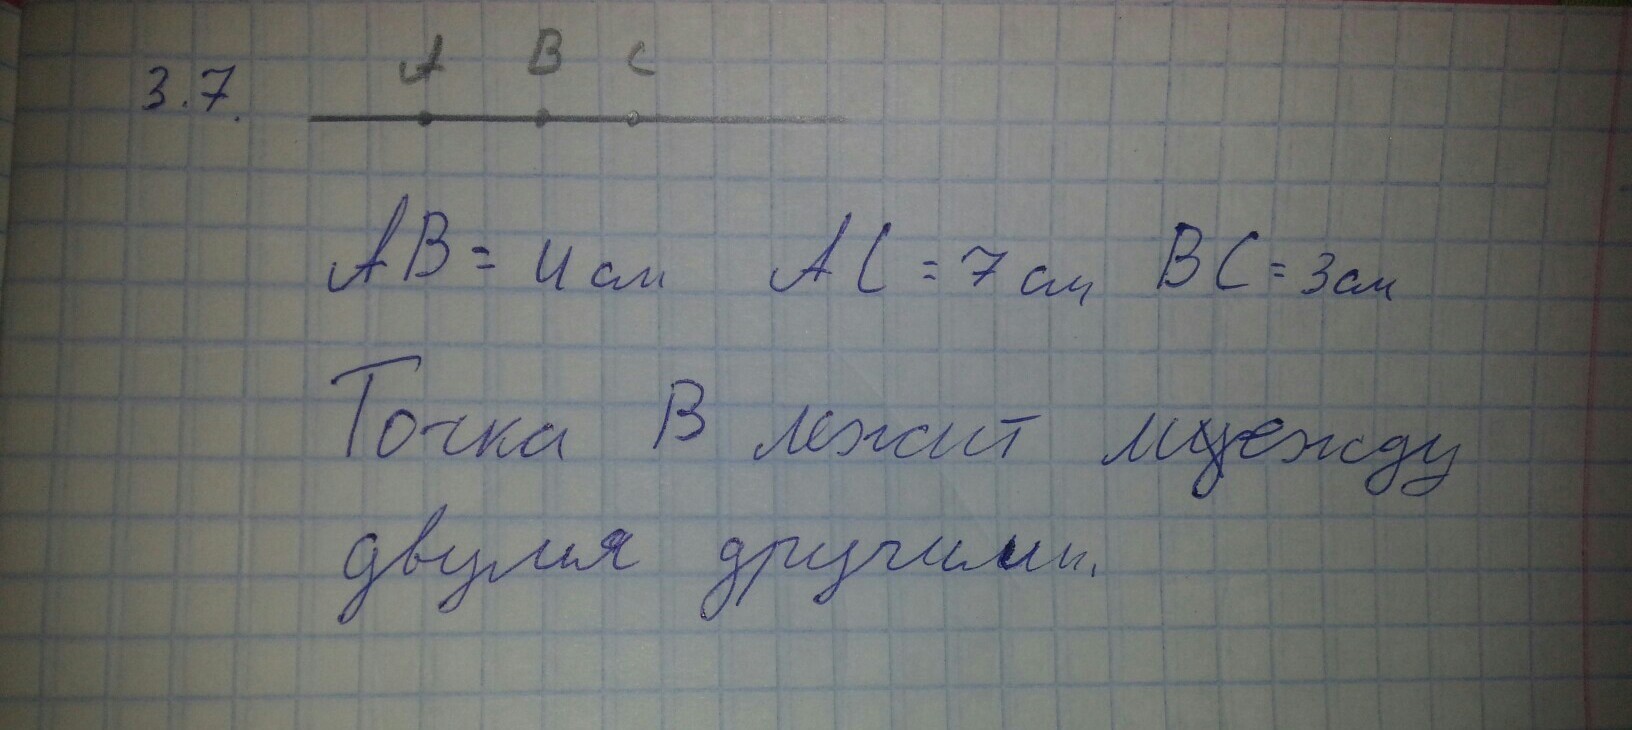 A B C
3.7.
AB = 4 см AC = 7 см BC = 3 см
Точка B лежит между
двумя другими.